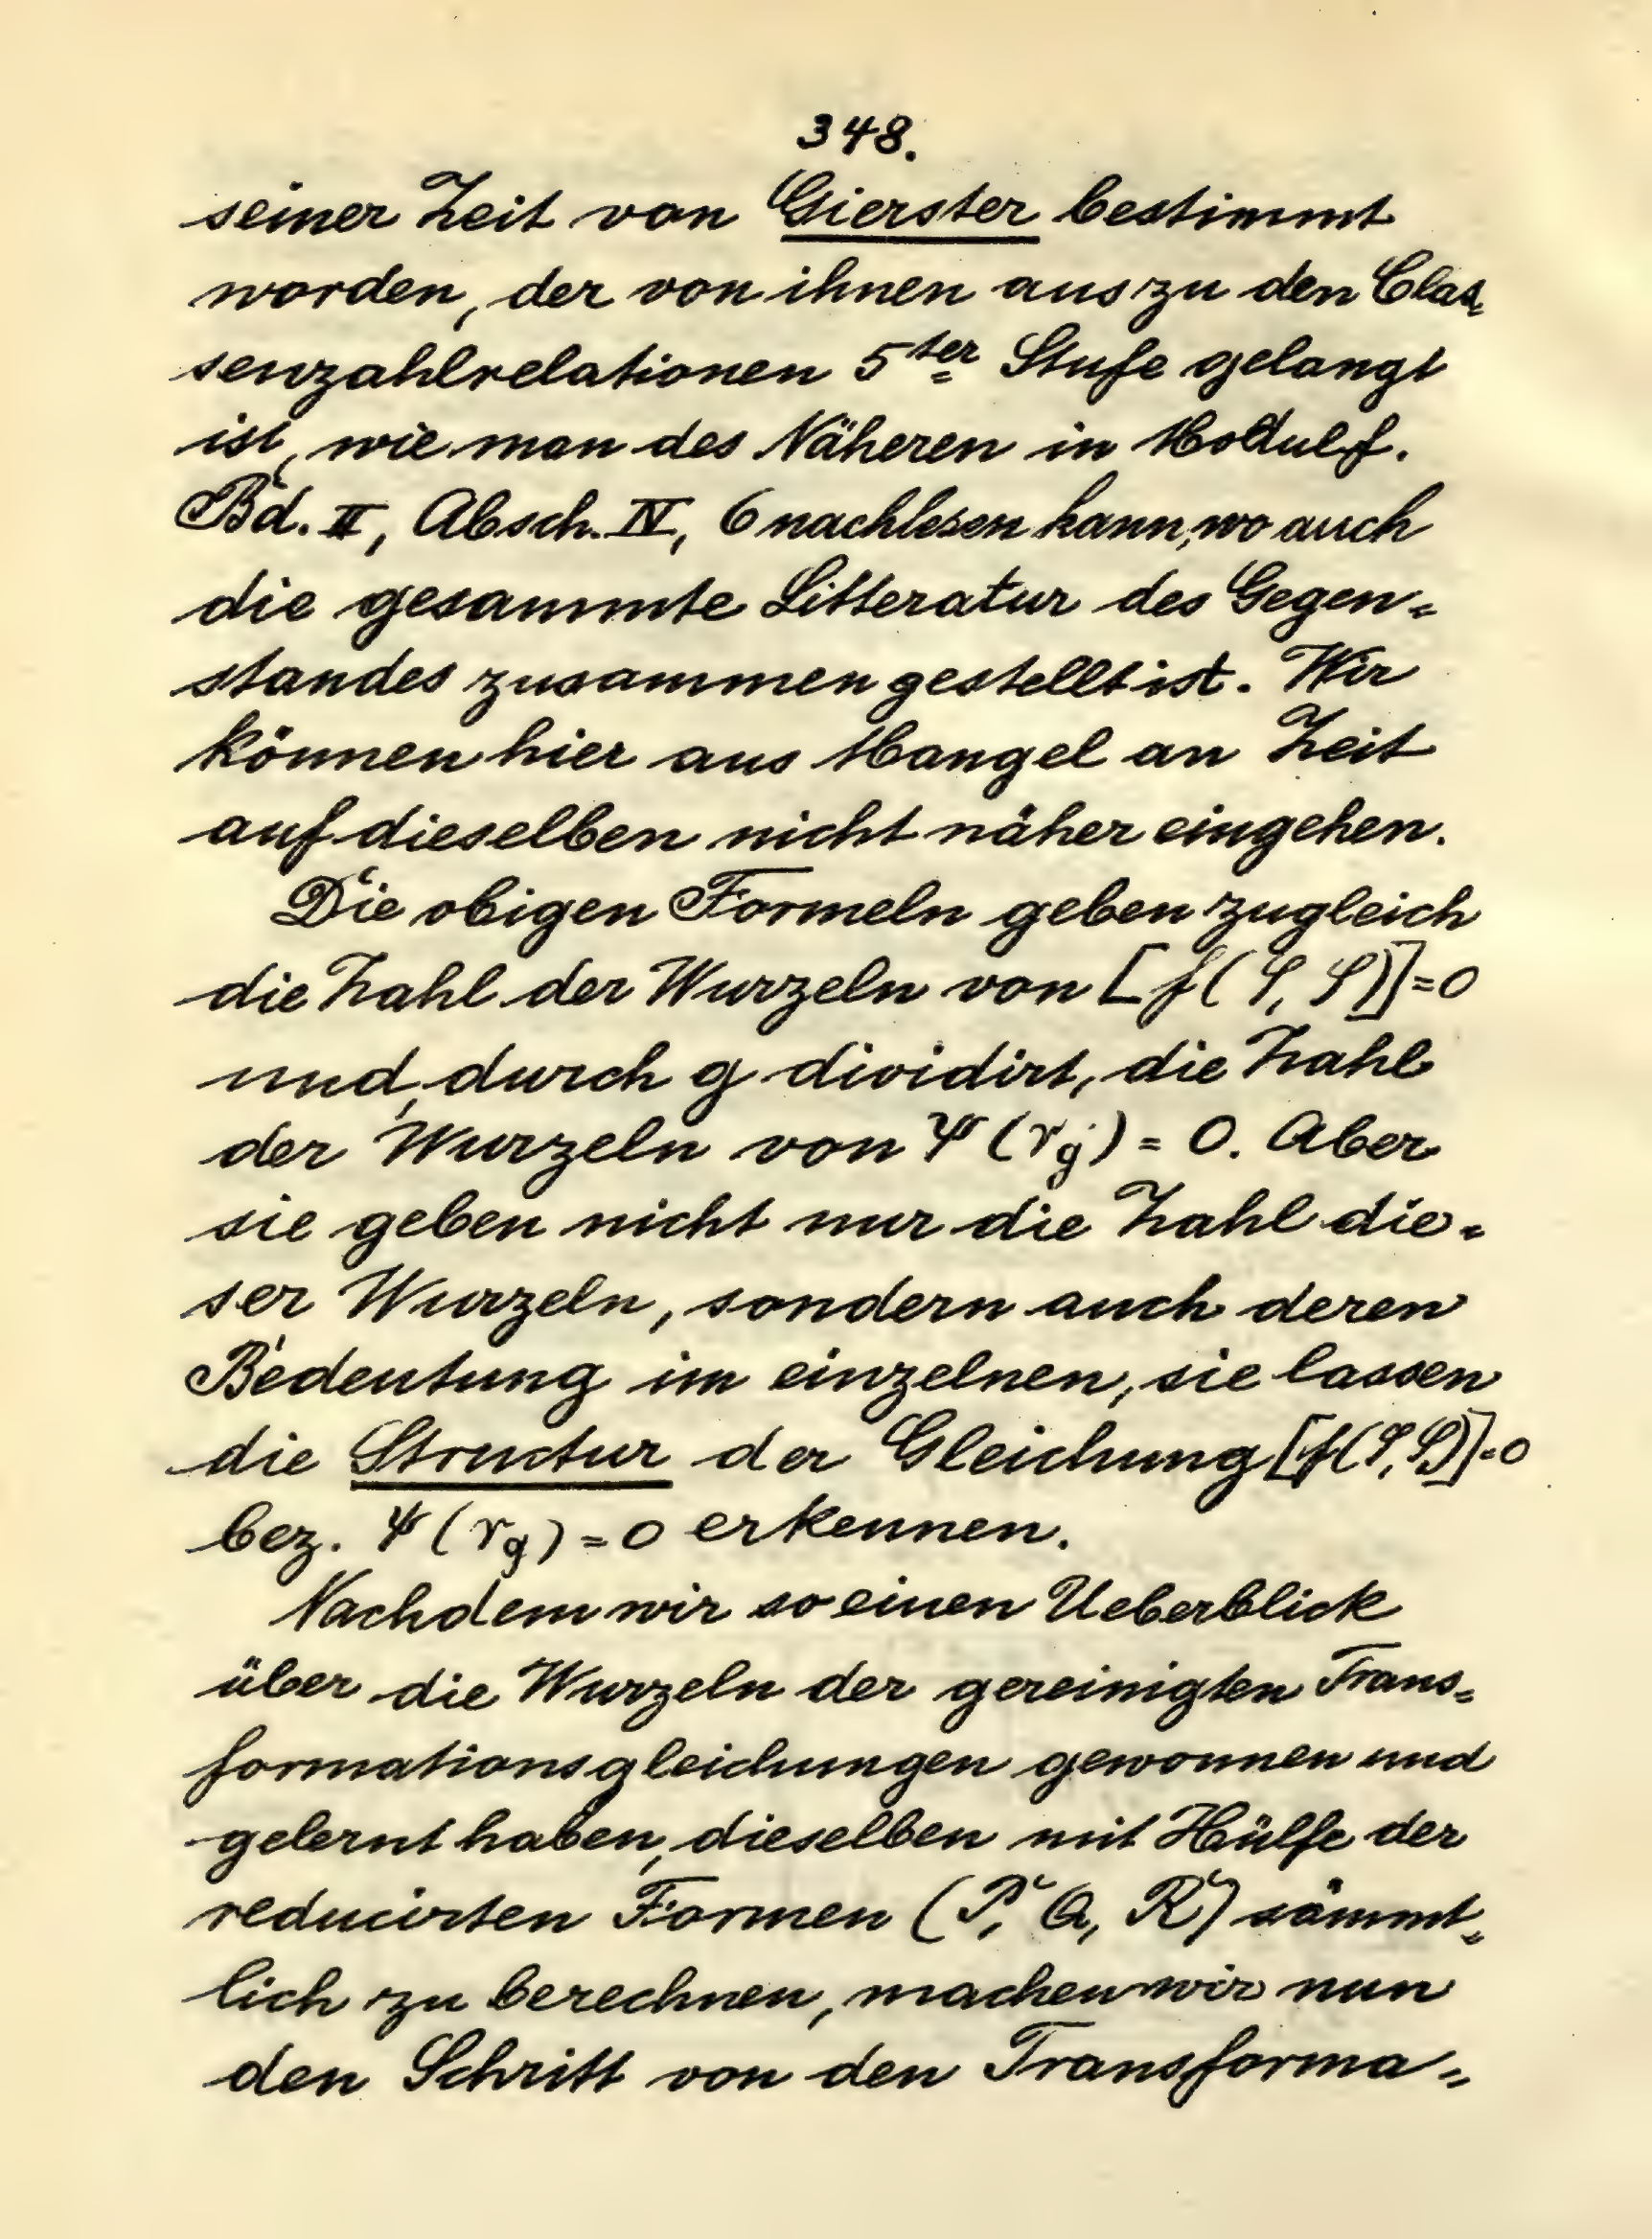 348.
seiner Zeit von Gierster bestimmt
worden, der von ihnen aus zu den Clas=
senzahlrelationen 5ter Stufe gelangt
ist, wie man des Näheren in Modulf.
Bd. II, Absch. IV, 6 nachlesen kann, wo auch
die gesammte Litteratur des Gegen=
standes zusammengestellt ist. Wir
können hier aus Mangel an Zeit
auf dieselben nicht näher eingehen.
Die obigen Formeln geben zugleich
die Zahl der Wurzeln von [f(φ, φ)]=0
und, durch g dividirt, die Zahl
der Wurzeln von Ψ(rg) = 0. Aber
sie geben nicht nur die Zahl die=
ser Wurzeln, sondern auch deren
Bedeutung im einzelnen, sie lassen
die Structur der Gleichung [f(φ, φ)]=0
bez. Ψ(rg) = 0 erkennen.
Nachdem wir so einen Ueberblick
über die Wurzeln der gereinigten Trans=
formationsgleichungen gewonnen und
gelernt haben, dieselben mit Hülfe der
reducirten Formen (P, Q, R) sämmt=
lich zu berechnen, machen wir nun
den Schritt von den Transforma=